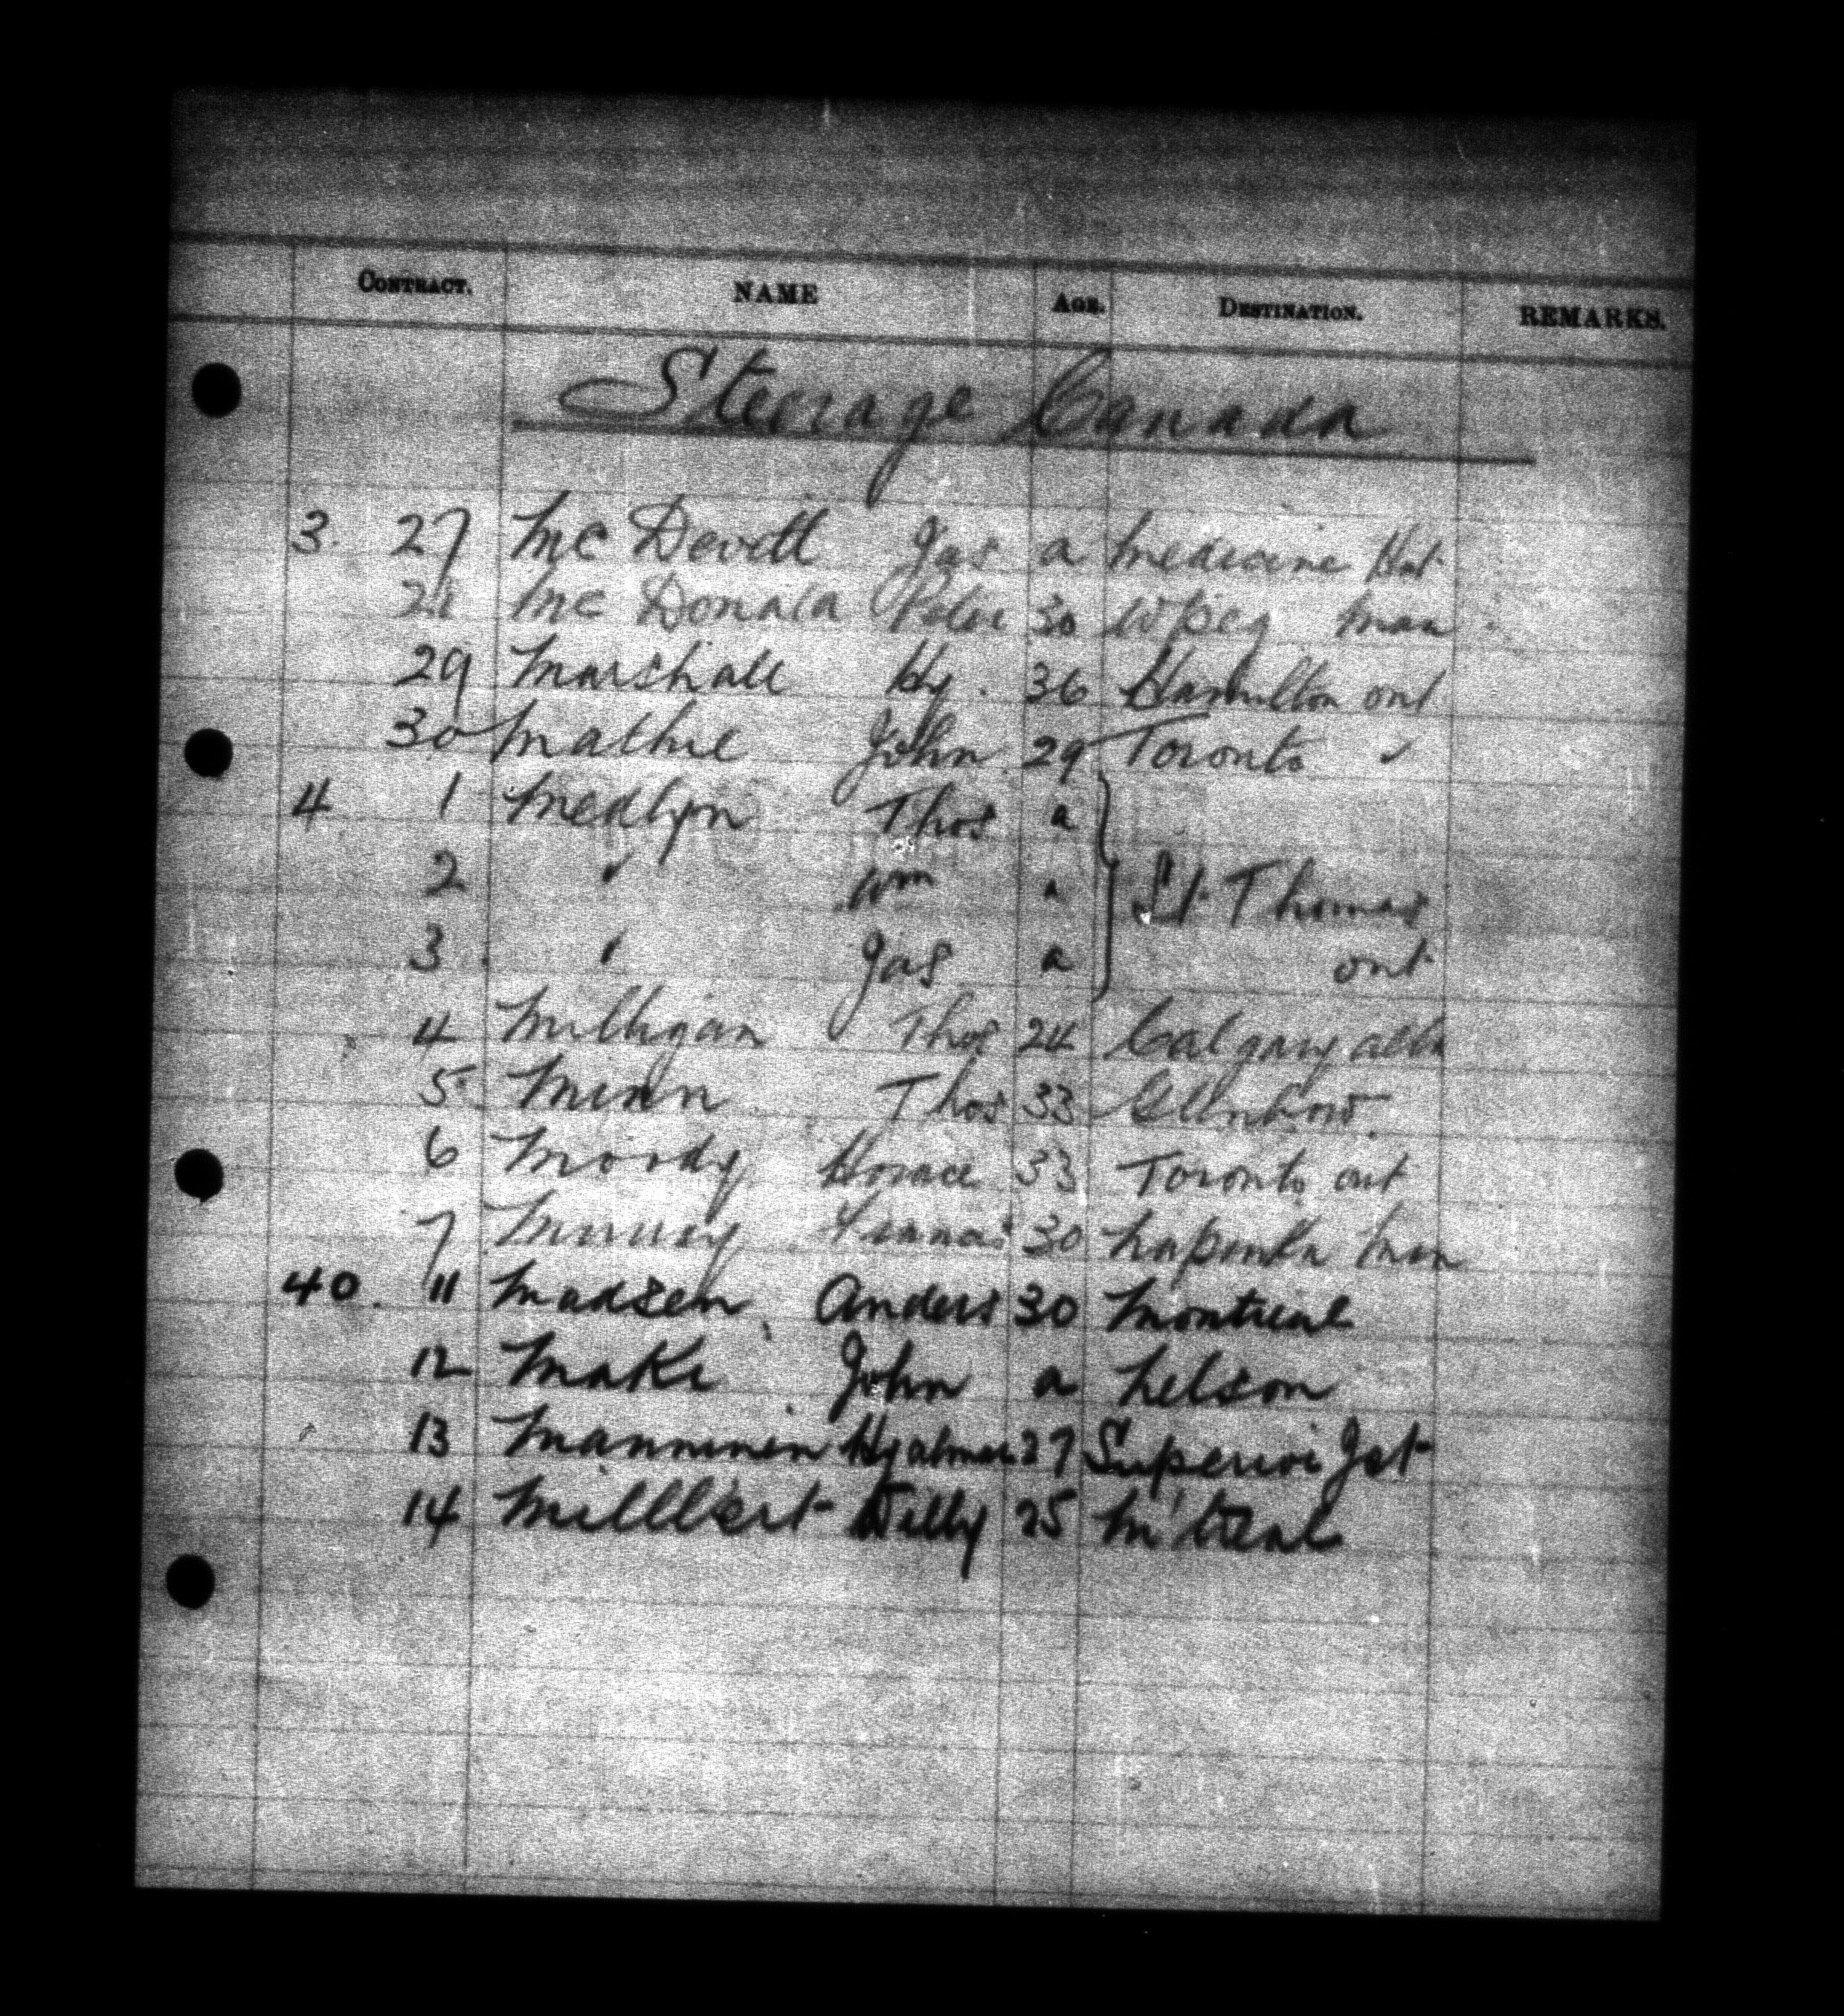 CONTRACT. NAME AGE. DESTINATION. REMARKS.
Steerage Canada
3. 27 McDevitt Jas a Medicine Hat
28 McDonald Peter 30 Wpeg Man
29 Marshall Hy. 36 Hamilton Ont
30 Mathie John 29 Toronto "
4 1 Medlyn Thos a
2 " Wm a St Thomas
3 " Jas a Ont
4 Milligan Thos 24 Calgary Alta
5 Minn Thos 33
6 Moody Horace 33 Toronto Ont
7 30 Man
40. 11 Madsen Anders 30 Montreal
12 Maki John a Nelson
13 Manninen Hjalmar 27 Superior Jct
14 Willy 25 M'treal